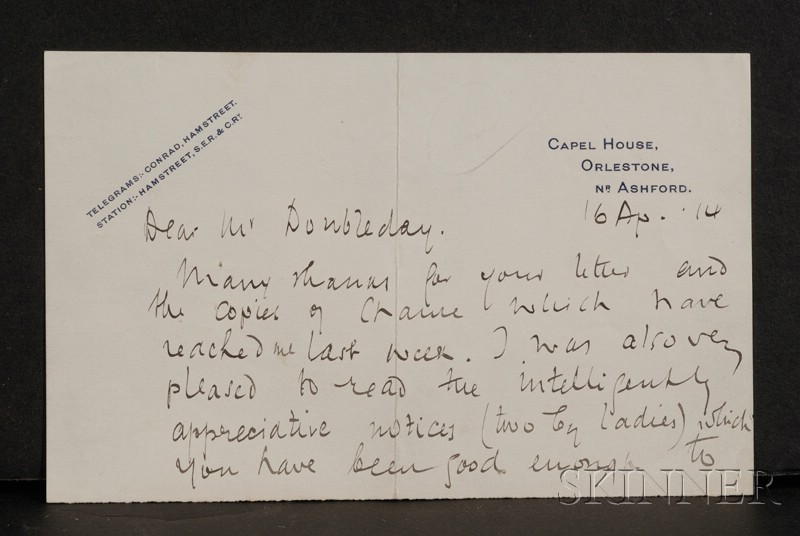 TELEGRAMS:- CONRAD, HAMSTREET.
STATION:- HAMSTREET, S.E.R. & C.RY.
CAPEL HOUSE,
ORLESTONE,
NR ASHFORD.
16 Ap. '14
Dear Mr Doubleday.
Many thanks for your letter and
the copies of Chance which have
reached me last week. I was also very
pleased to read the intelligently
appreciative notices (two by ladies) which
you have been good enough to
SKINNER